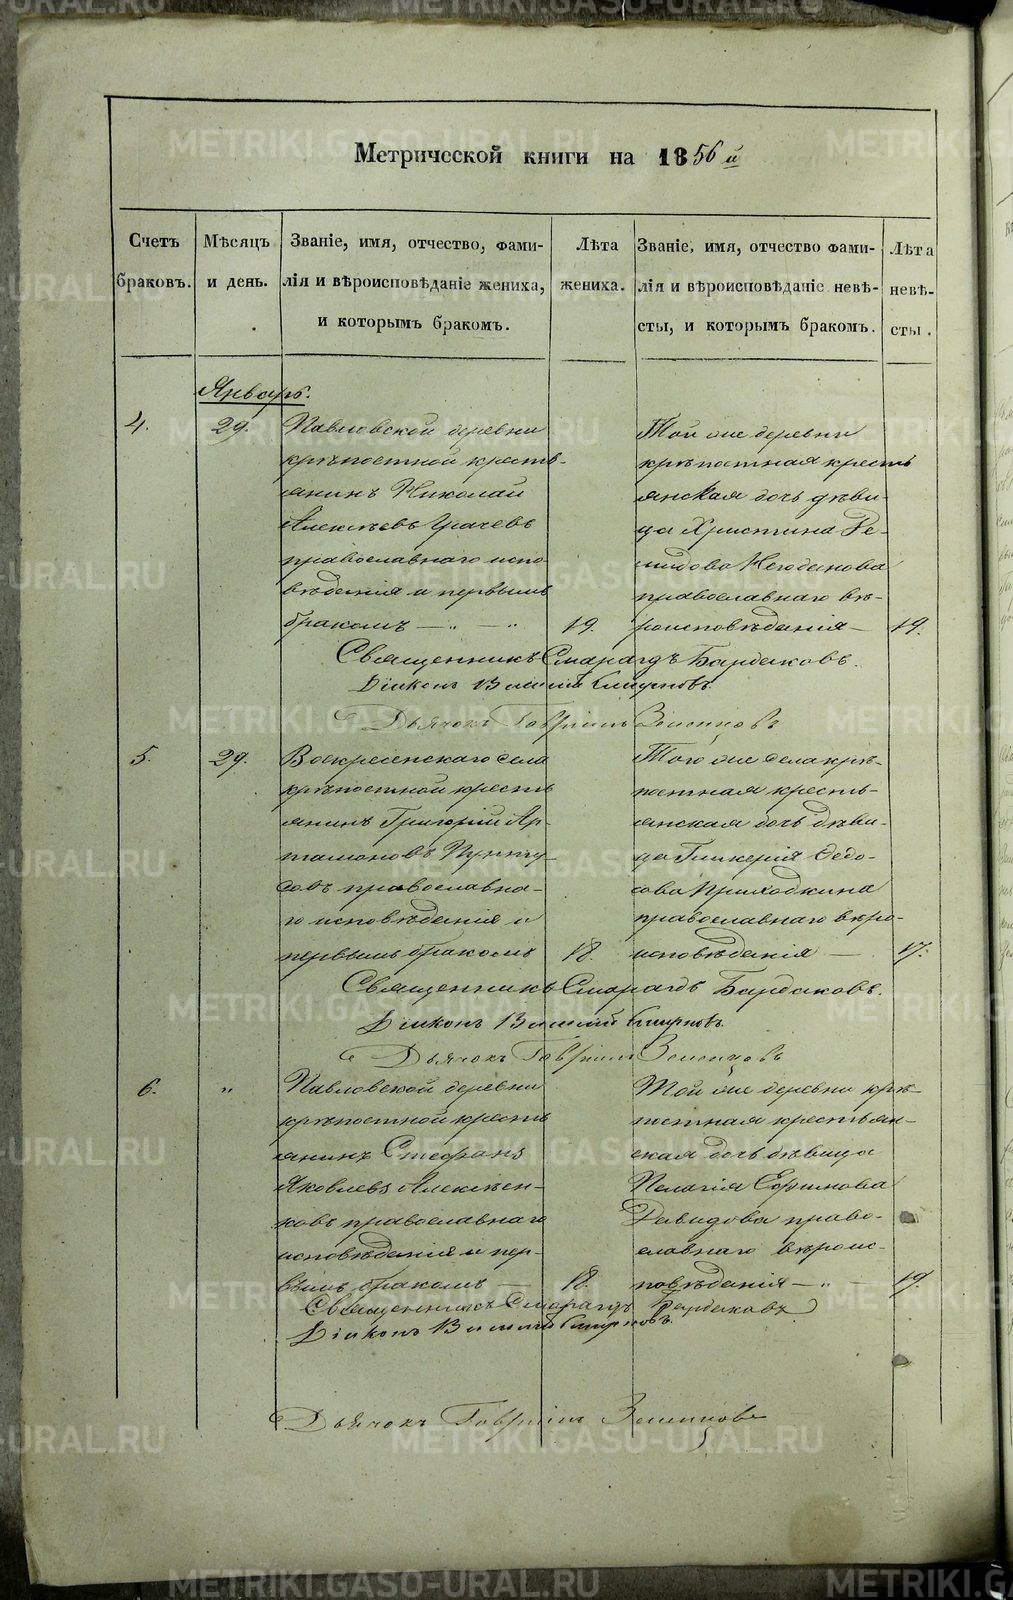 Метрической книги на 1856й
Счетъ браковъ.
Мѣсяцъ и день.
Званіе, имя, отчество, фами-
лія и вѣроисповѣданіе жениха,
и которымъ бракомъ.
Лѣта жениха.
Званіе, имя, отчество фами-
лія и вѣроисповѣданіе невѣ-
сты, и которымъ бракомъ.
Лѣта невѣ-
сты.
Январь.
4.
29.
Павловской деревни
крѣпостной кресть-
янинъ Николай
Алексѣевъ Грачевъ
православнаго испо-
вѣданія и первымъ
бракомъ — „ — „
19.
Той же деревни
крѣпостная кресть
янская дочь дѣви-
ца Христина Де-
мидова
православнаго вѣ-
роисповѣданія —
19.
Священникъ Смарагдъ Бардаковъ.
Діаконъ Василій Смирновъ.
Дьячокъ Гавріилъ
5.
29.
Воскресенскаго села
крѣпостной кресть
янинъ Григорій Ар-
тамоновъ
православна-
го исповѣданія и
первымъ бракомъ
18.
Того же села крѣ-
постная кресть-
янская дочь дѣви-
ца Гликерія Ѳедо-
сова Приходкина
православнаго вѣро-
исповѣданія —
17.
Священникъ Смарагдъ Бардаковъ.
Діаконъ Василій Смирновъ.
Дьячокъ Гавріилъ
6.
„
Павловской деревни
крѣпостной кресть
янинъ Стефанъ
Яковлевъ Алексѣен-
ковъ православнаго
исповѣданія и пер-
вымъ бракомъ —
18.
Той же деревни крѣ-
постная крестьян-
ская дочь дѣвица
Пелагія Ефимова
Давидова право-
славнаго вѣроис-
повѣданія — „ —
19.
Священникъ Смарагдъ Бардаковъ
Діаконъ Василій Смирновъ.
Дьячокъ Гавріилъ
METRIKI.GASO-URAL.RU